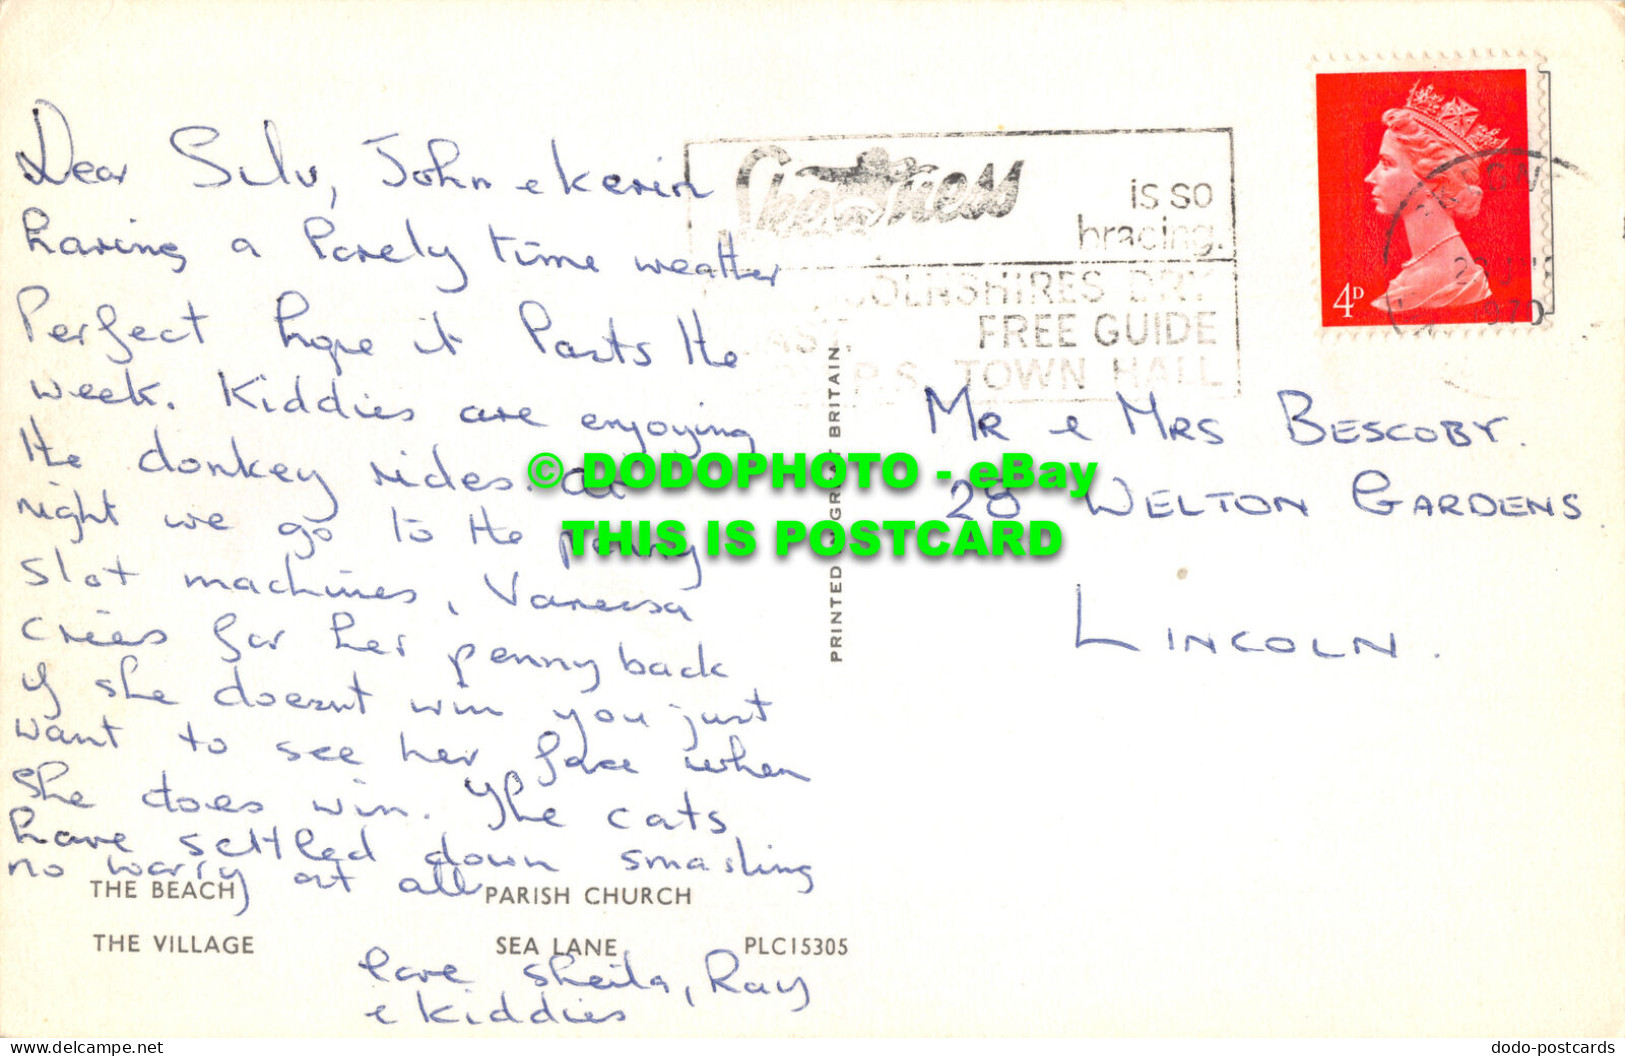 Dear Silv, John e Kevin
having a lovely time weather
Perfect hope it lasts the
week. Kiddies are enjoying
the donkey rides. at
night we go to the penny
slot machines, Vanessa
cries for her penny back
if she doesnt win you just
want to see her face when
she does win. The cats
have settled down smashing
no worry at all
love Sheila, Ray
e kiddies
THE BEACH
PARISH CHURCH
THE VILLAGE
SEA LANE
PLC15305
PRINTED IN GREAT BRITAIN
Skegness
is so
bracing.
LINCOLNSHIRES DRY
FREE GUIDE
TOWN HALL
4D
1970
MR e MRS BESCOBY.
28 WELTON GARDENS
LINCOLN.
© DODOPHOTO - eBay
THIS IS POSTCARD
delcampe.net
dodo-postcards